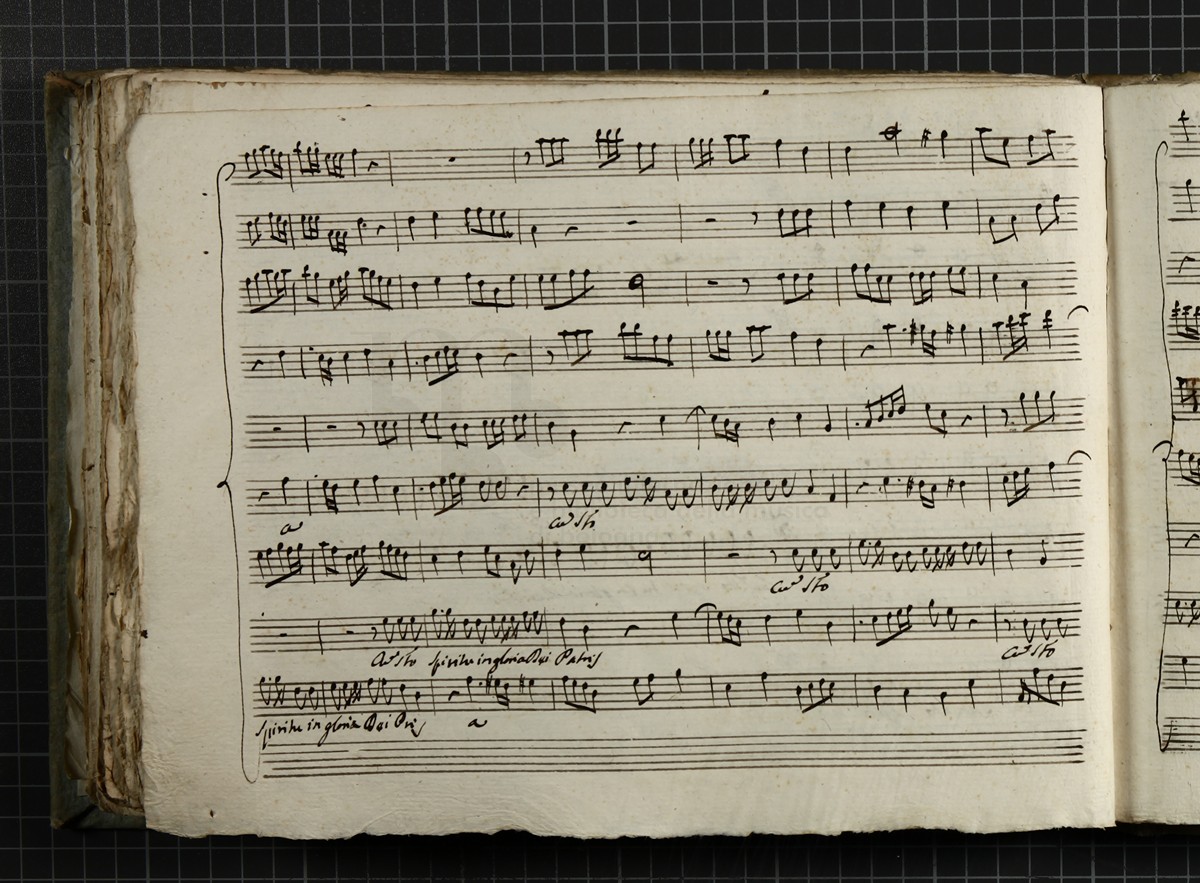 a
Cũ Sto
Cũ Sto
Cũ Sto Spiritu in gloria Dei Patris
Cũ Sto
Spiritu in gloria Dei Pris
a